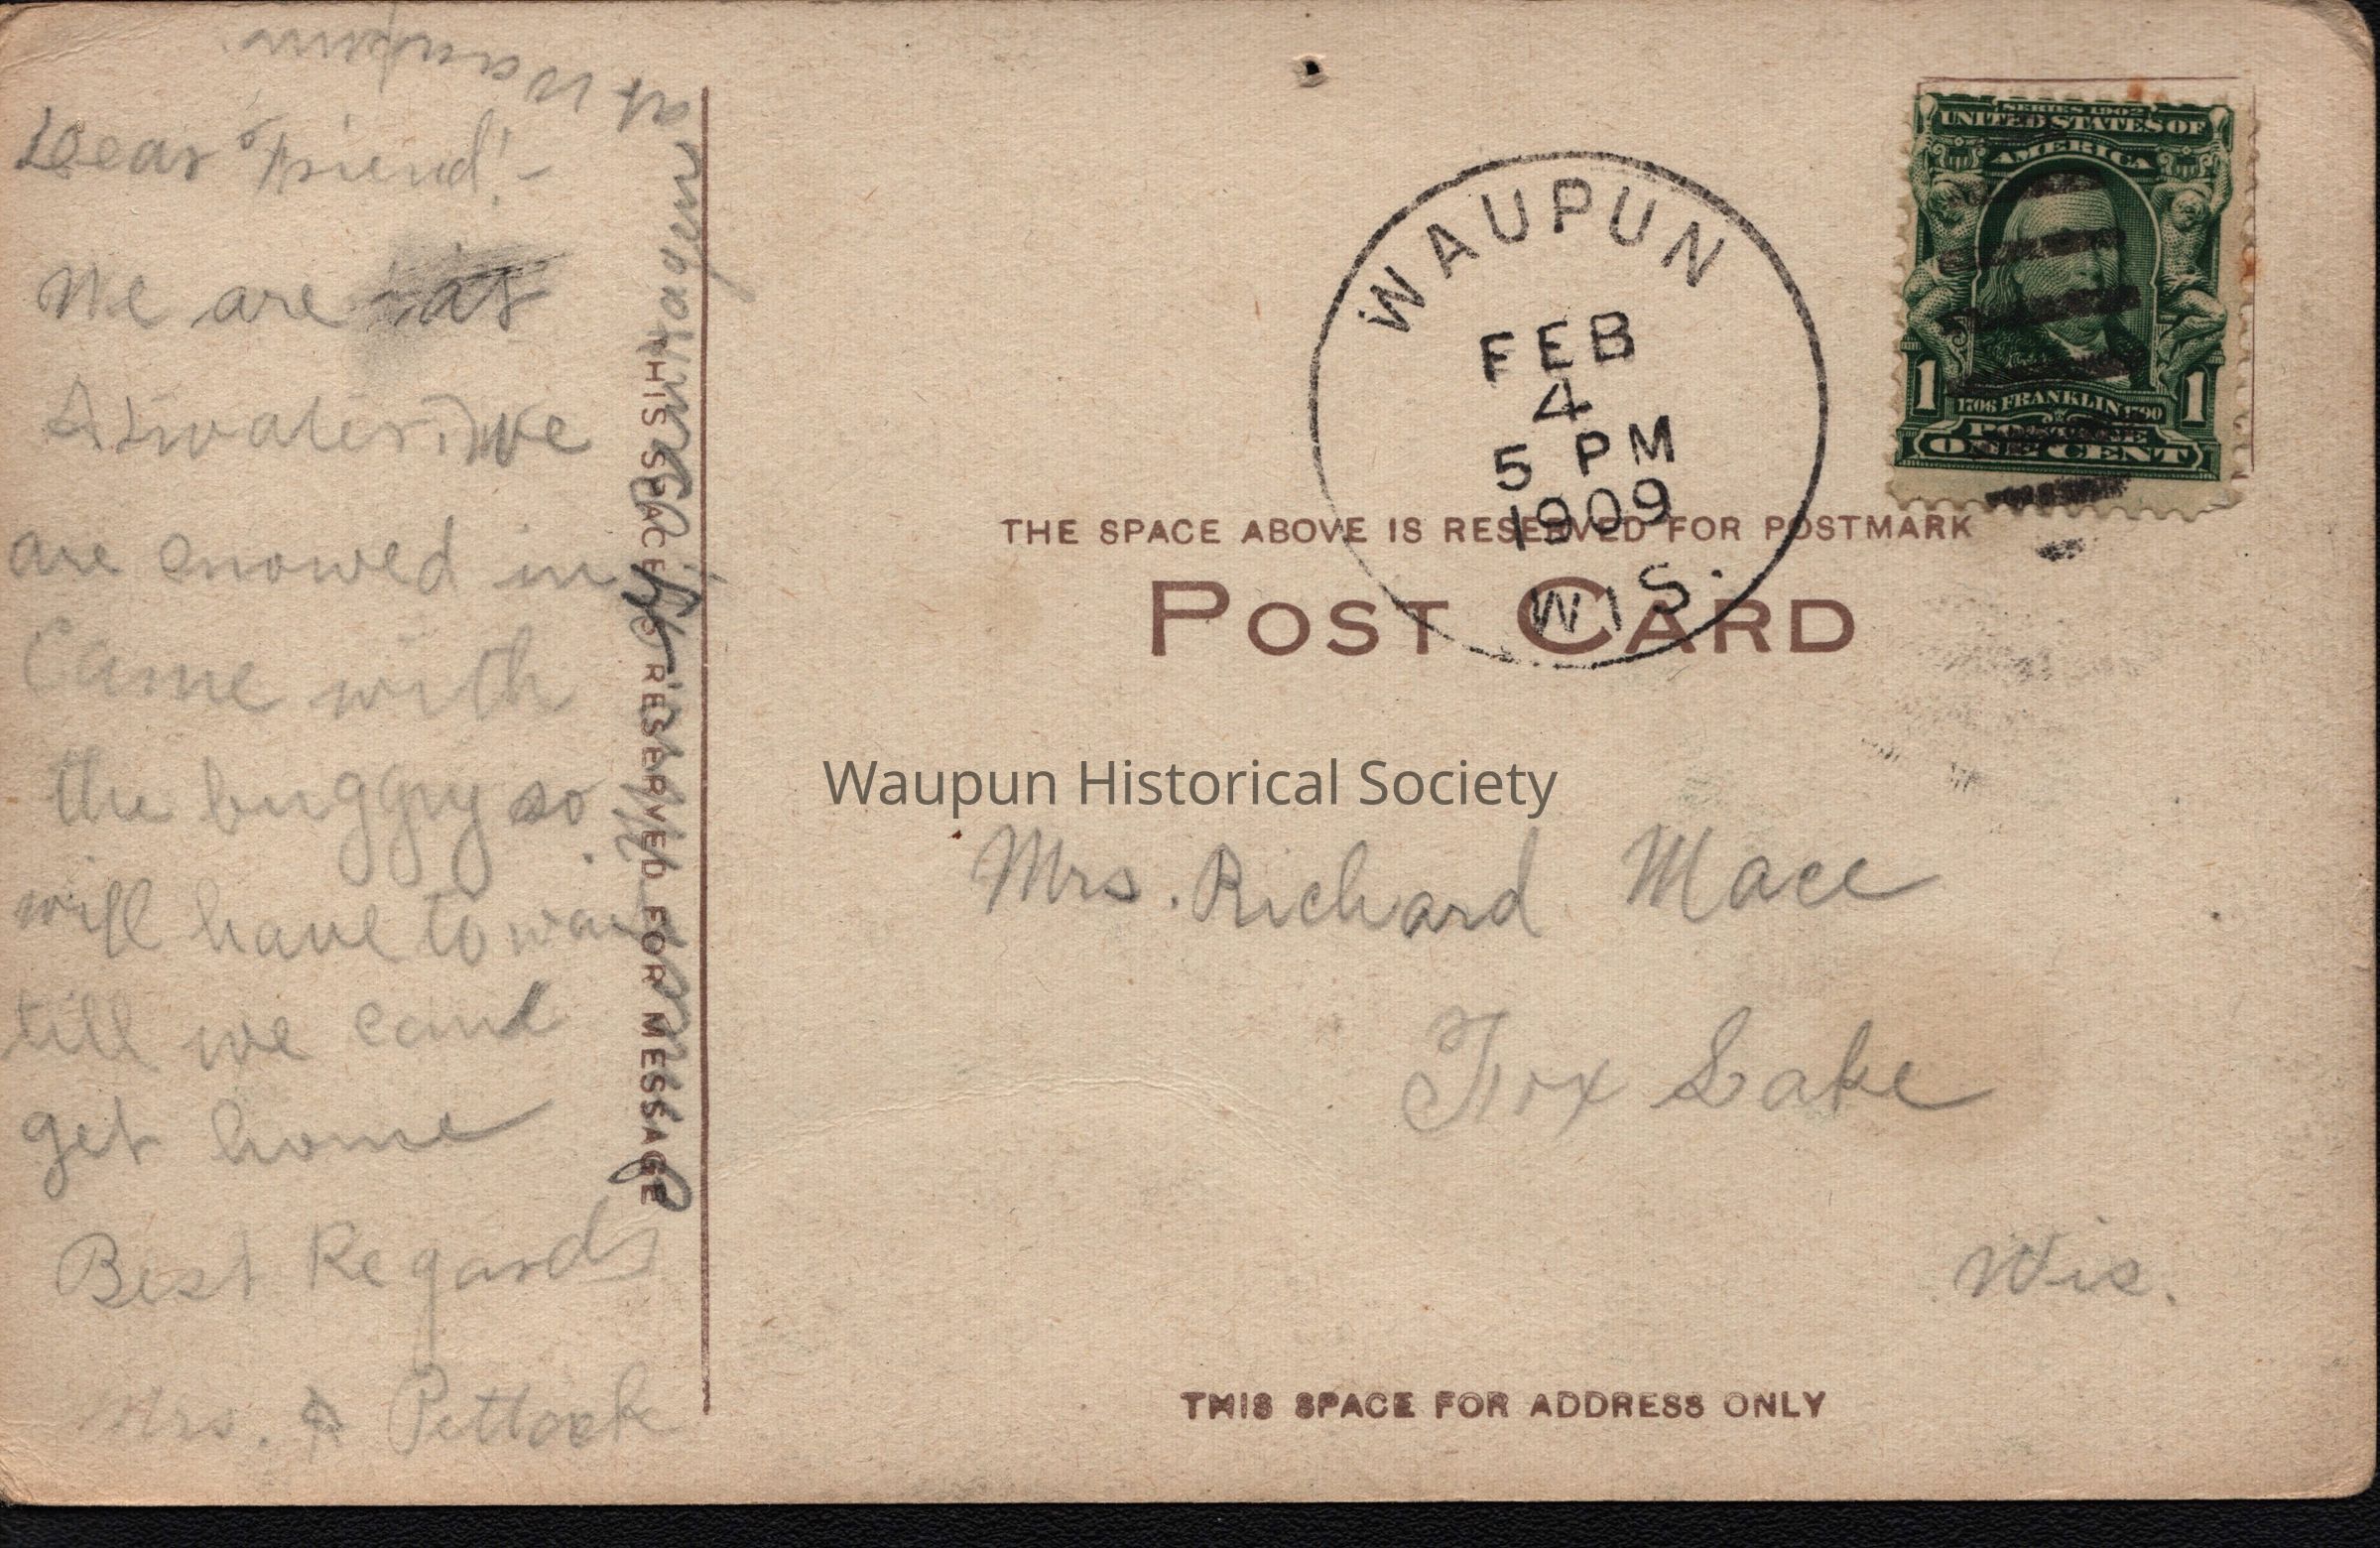 Dear Friend!-
We are at
Atwaters, we
are snowed in
Came with
the buggy so
will have to wait
till we can
get home
Best Regards
Mrs. A Pettock
THIS SPACE IS RESERVED FOR MESSAGE
WAUPUN
FEB
4
5 PM
1909
WIS.
SERIES 1902
UNITED STATES OF
AMERICA
1706 FRANKLIN 1790
1 1
POSTAGE
ONE CENT
THE SPACE ABOVE IS RESERVED FOR POSTMARK
POST CARD
Waupun Historical Society
Mrs. Richard Mace
Fox Lake
Wis.
THIS SPACE FOR ADDRESS ONLY